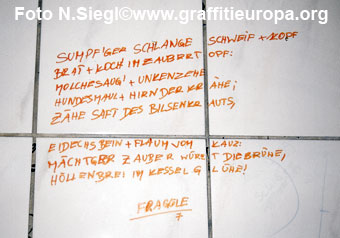 Foto N.Siegl©www.graffitieuropa.org
SUMPFIGER SCHLANGE SCHWEIF + KOPF
BRAT + KOCH IM ZAUBERTOPF:
MOLCHESAUG' + UNKENZEHE
HUNDESMAUL + HIRN DER KRÄHE;
ZÄHE SAFT DES BILSENKRAUTS,
EIDECHSBEIN + FLAUM VOM KAUZ:
MÄCHTGER ZAUBER WÜRZT DIE BRÜHE,
HÖLLENBREI IM KESSEL GLÜHE!
FRAGGLE